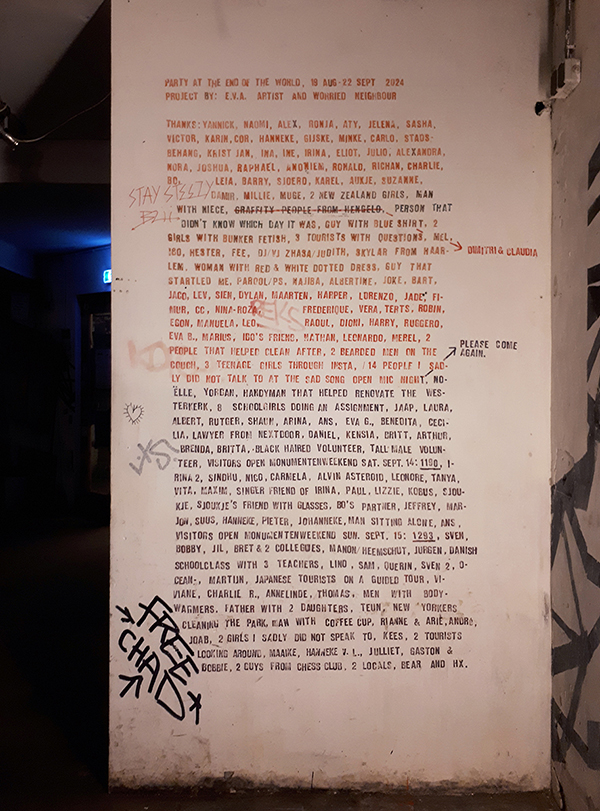 PARTY AT THE END OF THE WORLD, 18 AUG-22 SEPT 2024
PROJECT BY: E.V.A. ARTIST AND WORRIED NEIGHBOUR
THANKS: YANNICK, NAOMI, ALEX, RONJA, ATY, JELENA, SASHA,
VICTOR, KARIN, COR, HANNEKE, GIJSKE, MINKE, CARLO, STADS-
BEHANG, KRIST JAN, INA, INE, IRINA, ELIOT, JULIO, ALEXANDRA,
NORA, JOSHUA, RAPHAEL, ANDRIEN, RONALD, RICHAN, CHARLIE,
BO, LEIA, BARRY, SJOERD, KAREL, AUKJE, SUZANNE,
STAY STEEZY
DAMIR, MILLIE, MUGE, 2 NEW ZEALAND GIRLS, MAN
WITH NIECE, GRAFFITY PEOPLE FROM HENGELO, PERSON THAT
DIDN'T KNOW WHICH DAY IT WAS, GUY WITH BLUE SHIRT, 2
GIRLS WITH BUNKER FETISH, 3 TOURISTS WITH QUESTIONS, MEL,
DMITRI & CLAUDIA
IDO, HESTER, FEE, DJ/VJ ZHASA/JUDITH, SKYLAR FROM HAAR-
LEM, WOMAN WITH RED & WHITE DOTTED DRESS, GUY THAT
STARTLED ME, PAROOL/PS, NAJIBA, ALBERTINE, JOKE, BART,
JACO, LEV, SIEN, DYLAN, MAARTEN, HARPER, LORENZO, JADE, FI-
MUR, CC, NINA-ROZA, FREDERIQUE, VERA, TERTS, ROBIN,
EGON, MANUELA, LEO, RAOUL, DIONI, HARRY, RUGGERO,
EVA B., MARIUS, IDO'S FRIEND, NATHAN, LEONARDO, MEREL, 2
PEOPLE THAT HELPED CLEAN AFTER, 2 BEARDED MEN ON THE
PLEASE COME
AGAIN.
COUCH, 3 TEENAGE GIRLS THROUGH INSTA, 14 PEOPLE I SAD-
LY DID NOT TALK TO AT THE SAD SONG OPEN MIC NIGHT, NO-
ËLLE, YORDAN, HANDYMAN THAT HELPED RENOVATE THE WES-
TERKERK, 8 SCHOOLGIRLS DOING AN ASSIGNMENT, JAAP, LAURA,
ALBERT, RUTGER, SHAUN, ARINA, ANS, EVA G., BENEDITA, CECI-
LIA, LAWYER FROM NEXTDOOR, DANIEL, KENSIA, BRITT, ARTHUR,
BRENDA, BRITTA, BLACK HAIRED VOLUNTEER, TALL MALE VOLUN-
TEER, VISITORS OPEN MONUMENTENWEEKEND SAT. SEPT. 14: 1190, I-
RINA 2, SINDHU, NICO, CARMELA, ALVIN ASTEROID, LEONORE, TANYA,
VITA, MAXIM, SINGER FRIEND OF IRINA, PAUL, LIZZIE, KOBUS, SJOU-
KJE, SJOUKJE'S FRIEND WITH GLASSES, BO'S PARTNER, JEFFREY, MAR-
JON, SUUS, HANNEKE, PIETER, JOHANNEKE, MAN SITTING ALONE, ANS,
VISITORS OPEN MONUMENTENWEEKEND SUN. SEPT. 15: 1293, SVEN,
BOBBY, JIL, BRET & 2 COLLEGUES, MANON/HEEMSCHUT, JURGEN, DANISH
SCHOOLCLASS WITH 3 TEACHERS, LIND, SAM, QUERIN, SVEN 2, O-
CEAN, MARTIJN, JAPANESE TOURISTS ON A GUIDED TOUR, VI-
VIANE, CHARLIE R., ANNELINDE, THOMAS, MEN WITH BODY-
WARMERS, FATHER WITH 2 DAUGHTERS, TEUN, NEW YORKERS
CLEANING THE PARK, MAN WITH COFFEE CUP, RIANNE & ARIE, ANDRE,
JOAB, 2 GIRLS I SADLY DID NOT SPEAK TO, KEES, 2 TOURISTS
LOOKING AROUND, MAAIKE, HANNEKE V. L., JULLIET, GASTON &
DOBBIE, 2 GUYS FROM CHESS CLUB, 2 LOCALS, BEAR AND HX.
FREE
CHALD